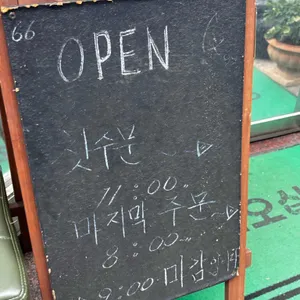 66
OPEN
첫주문
11:00
마지막 주문
8:00
9:00 마감
오